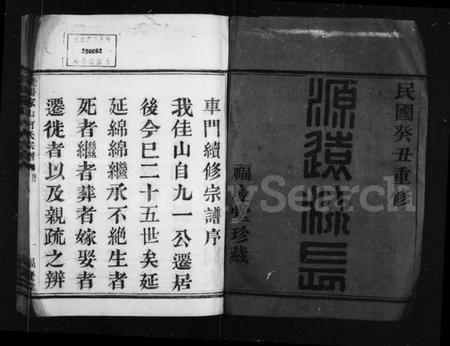 民國癸丑重修
源遠流長
福慶堂珍藏
車門續修宗譜序
我佳山自九一公遷居
後今已二十五世矣延
延綿綿繼承不絕生者
死者繼者葬者嫁娶者
遷徙者以及親疏之辨